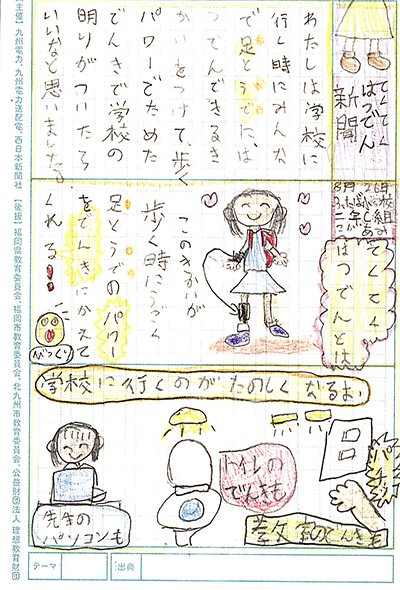 てくてく
はつでん
新聞
わたしは学校に
行く時にみんな
で足とうでに、は
つでんできるき
かいをつけて、歩く
パワーでためた
でんきで学校の
明りがついたら
いいなと思いました。
てくてく
はつでんとは
このきかいが
歩く時にうごく
足とうでのパワー
をでんきにかえて
くれる!!
びっくり
学校に行くのがたのしくなるよ。
教室のでんきも
トイレの
でんきも
先生の
パソコンも
主催】九州電力、九州電力送配電、西日本新聞社 【後援】福岡県教育委員会、福岡市教育委員会、北九州市教育委員会、公益財団法人 理想教育財団
テーマ
出典